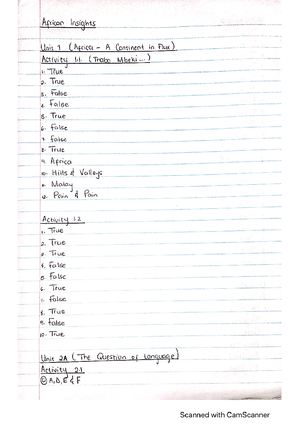 African Insights
Unit 1 (Africa - A Continent in Flux)
Activity 1.1 (Thabo Mbeki...)
1. True
2. True
3. False
4. False
5. True
6. False
7. False
8. True
9. Africa
10. Hills & Valleys
11. Malay
12. Pain & Pain
Activity 1.2
1. True
2. True
3. True
4. False
5. False
6. True
7. False
8. True
9. False
10. True
Unit 2A (The Question of Language)
Activity 2.1
A, D, E & F
Scanned with CamScanner